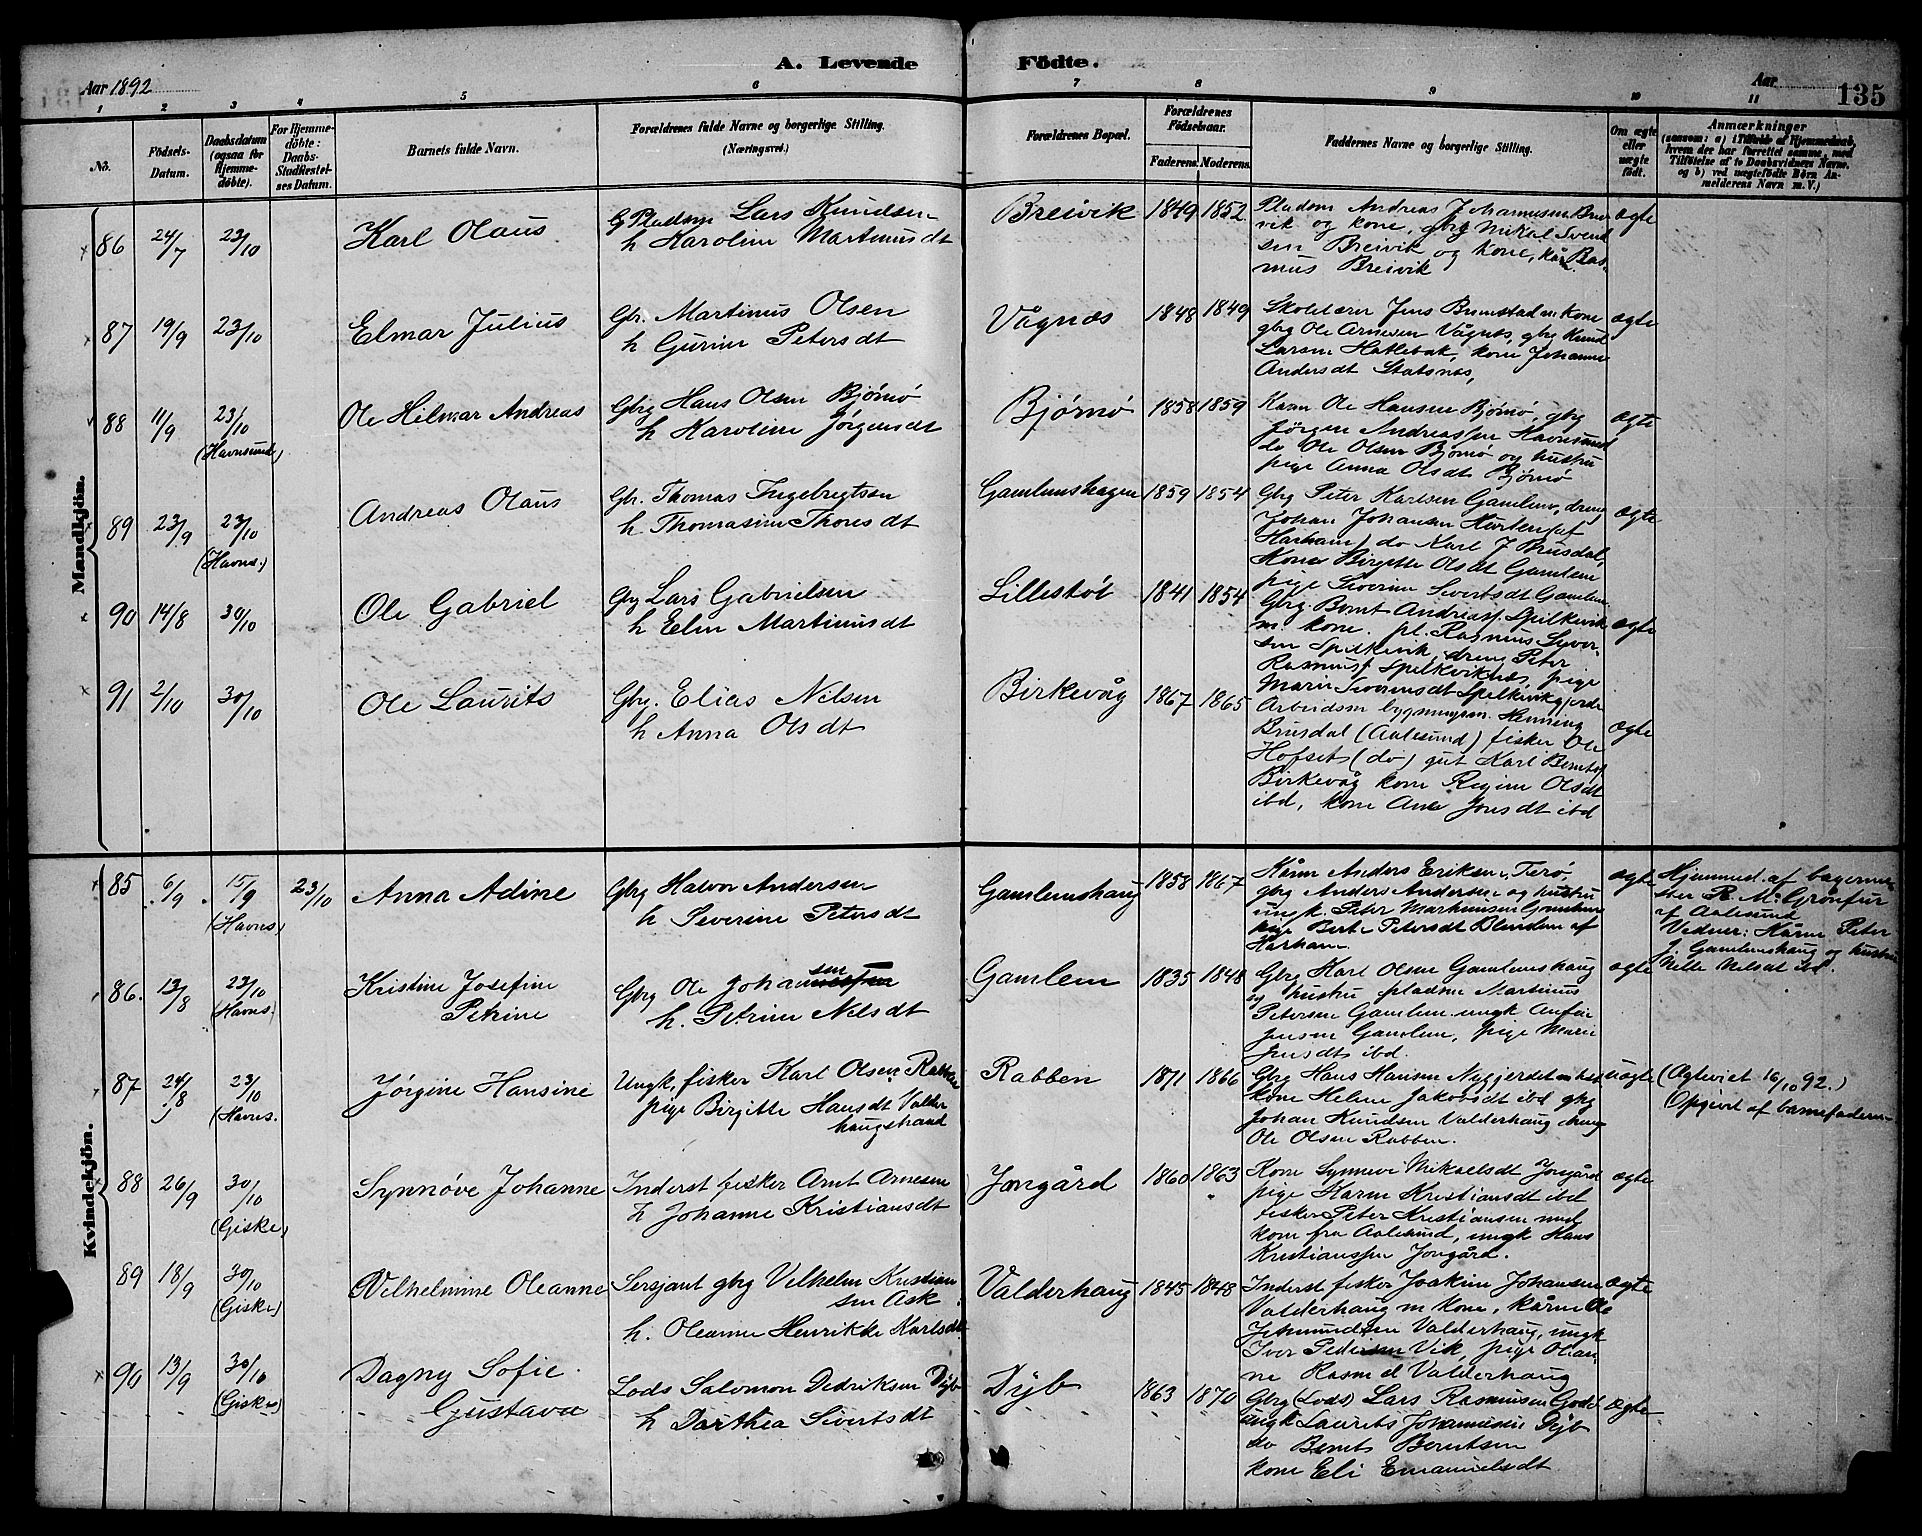 A. Levende Födte.
Aar 1892
Aar
135
1 2 3 4 5 6 7 8 9 10 11
No.
Födsels-
Datum.
Daabsdatum
(ogsaa for
Hjemme-
döbte).
For Hjemme-
döbte:
Daabs-
Stadfæstel-
ses Datum.
Barnets fulde Navn.
Forældrenes fulde Navne og borgerlige Stilling.
(Næringsvei.)
Forældrenes Bopæl.
Forældrenes
Födselsaar.
Faderens. Moderens.
Faddernes Navne og borgerlige Stilling.
Om ægte
eller
uægte
födt.
Anmærkninger
(saasom: a) i Tilfælde af Hjemmedaab,
hvem der har forrettet samme, med
Tilföielse af to Daabsvidners Navne,
og b) ved uægtefödte Börn An-
melderens Navn m. V.)
Mandkjön.
86 24/7 23/10 Karl Olaus
G Pladsm Lars Knudsen
h Karoline Martinusdt
Breivik 1849 1852
Pladsm Andreas Johannesen Brei
vik og kone, gbrg Mikal Svend
sen Breivik og kone, kår Ras-
mus Breivik
ægte
87 19/9 23/10 Elmar Julius
Gbr. Martinus Olsen
h Gurine Petersdt
Vågnæs 1848 1849
Skolelærer Jens Brunstad m kone
gbrg Ole Arnesen Vågnes, gbrg Knud
Larsen Hatlebak, kone Johanne
Andersdt Statsnæs,
ægte
88 11/9 23/10 (Havnsund) Ole Hilmar Andreas
Gbrg Hans Olsen Bjørnø
h Karoline Jørgensdt
Bjørnø 1858 1859
Kårm Ole Hansen Bjørnø, gbrg
Jørgen Andreassen Havnsund
do Ole Olsen Bjørnø og hustru
pige Anna Olsdt Bjørnø
ægte
89 23/9 23/10 (Havns.) Andreas Olaus
Gbr. Thomas Ingebrigtsen
h Thomasine Thoresdt
Gamlemshagen 1859 1854
Gbrg Peter Karlsen Gamlem, dreng
Johan Johansen Hurlen (af
Harham) do Karl J Brusdal,
Kone Birgitte Olsdt Gamlem
pige Severine Sivertsdt Gamlem
ægte
90 14/8 30/10 Ole Gabriel
Gbrg Lars Gabrielsen
h Elen Martinusdt
Lillestøl 1841 1854
Gbrg. Bernt Andreass. Spilkevik
m. kone. pl. Rasmus Syver-
sen Spilkevik, dreng Peter
Rasmuss Spelkeviknes, pige
Marie Severinsdt Spelkevikgjerde
ægte
91 2/10 30/10 Ole Laurits
Gbrg. Elias Nilsen
h Anna Olsdt
Birkevåg 1867 1865
Arbeidsm bygningsm. Henning
Brusdal (Aalesund) fisker Ole
Hofset (do) gut Karl Berntss
Birkevåg kone Regine Olsdt
ibd, kone Ane Jonsdt ibd
ægte
Kvindekjön.
85 6/9 15/9 (Havns) 23/10 Anna Adine
Gbrg Halvor Andersen
h Severine Petersdt
Gamlemshaug 1858 1867
Kårm Anders Eriksen Terø,
gbrg Anders Andersen og hustru
ungk. Peter Martinusen
pige Berte Petersdt Blindem af
Harham
ægte
Hjemmed. af bagerme-
ster R. M. Grönfur
af Aalesund
Vidner: Kårm Peter
J. Gamlemshaug og hustru
Nille Nilsdt ibd.
86. 13/8 23/10 (Havns.) Kristine Josefine
Petrine
Gbrg Ole Johansen
h. Petrine Nelsdt
Gamlem 1835 1848
Gbrg Karl Olsen Gamlemshaug
og hustru pladsm Martinus
Petersen Gamlem ungk Anfin
Jensen Gamlem, pige Marie
Jensdt ibd.
ægte
87 24/8 23/10 (Havns. Jørgine Hansine
Ungk, fisker Karl Olsen Rabben
pige Birgitte Hansdt Valder
haugstrand
Rabben 1871 1866
Gbrg Hans Hansen Nygjerdet m
kone Helene Jakobsdt ibd gbrg
Johan Knudsen Valderhaug dreng
Ole Olsen Rabben.
uægte
(Ægteviet 16/10 92.)
(Opgivet af barnefaderen
88 26/9 30/10 (Giske) Synnøve Johanne
Inderst fisker Arnt Arnesen
h Johanne Kristiansdt
Jongård 1860 1863
Kone Synnevi Mikaelsdt Jongård
pige Karen Kristiansdt ibd
fisker Peter Kristiansen med
kone fra Aalesund, ungk Hans
Kristianssen Jongård.
ægte
89 18/9 30/10 (Giske) Vilhelmine Oleanne
Sersjant gbrg Vilhelm Kristian
sen Ask
h. Oleanne Henrikke Karlsdt
Valderhaug 1845 1848
Inderst fisker Joakim Johansen
Valderhaug m kone, kårm Ole
Jetmundsen Valderhaug, ungk
Iver Pedersen Vik, pige Olean-
ne Rasmd Valderhaug
ægte
90 13/9 30/10 (Giske) Dagny Sofie
Gustava
Lods Salomon Dedriksen Dyb
h Dorthea Sivertsdt
Dyb 1863 1870
Gbrg (Lods) Lars Rasmussen Godø
ungk Laurits Johannesen Dyb
do Bernt Berntsen
kone Eli Emanuelsdt
ægte